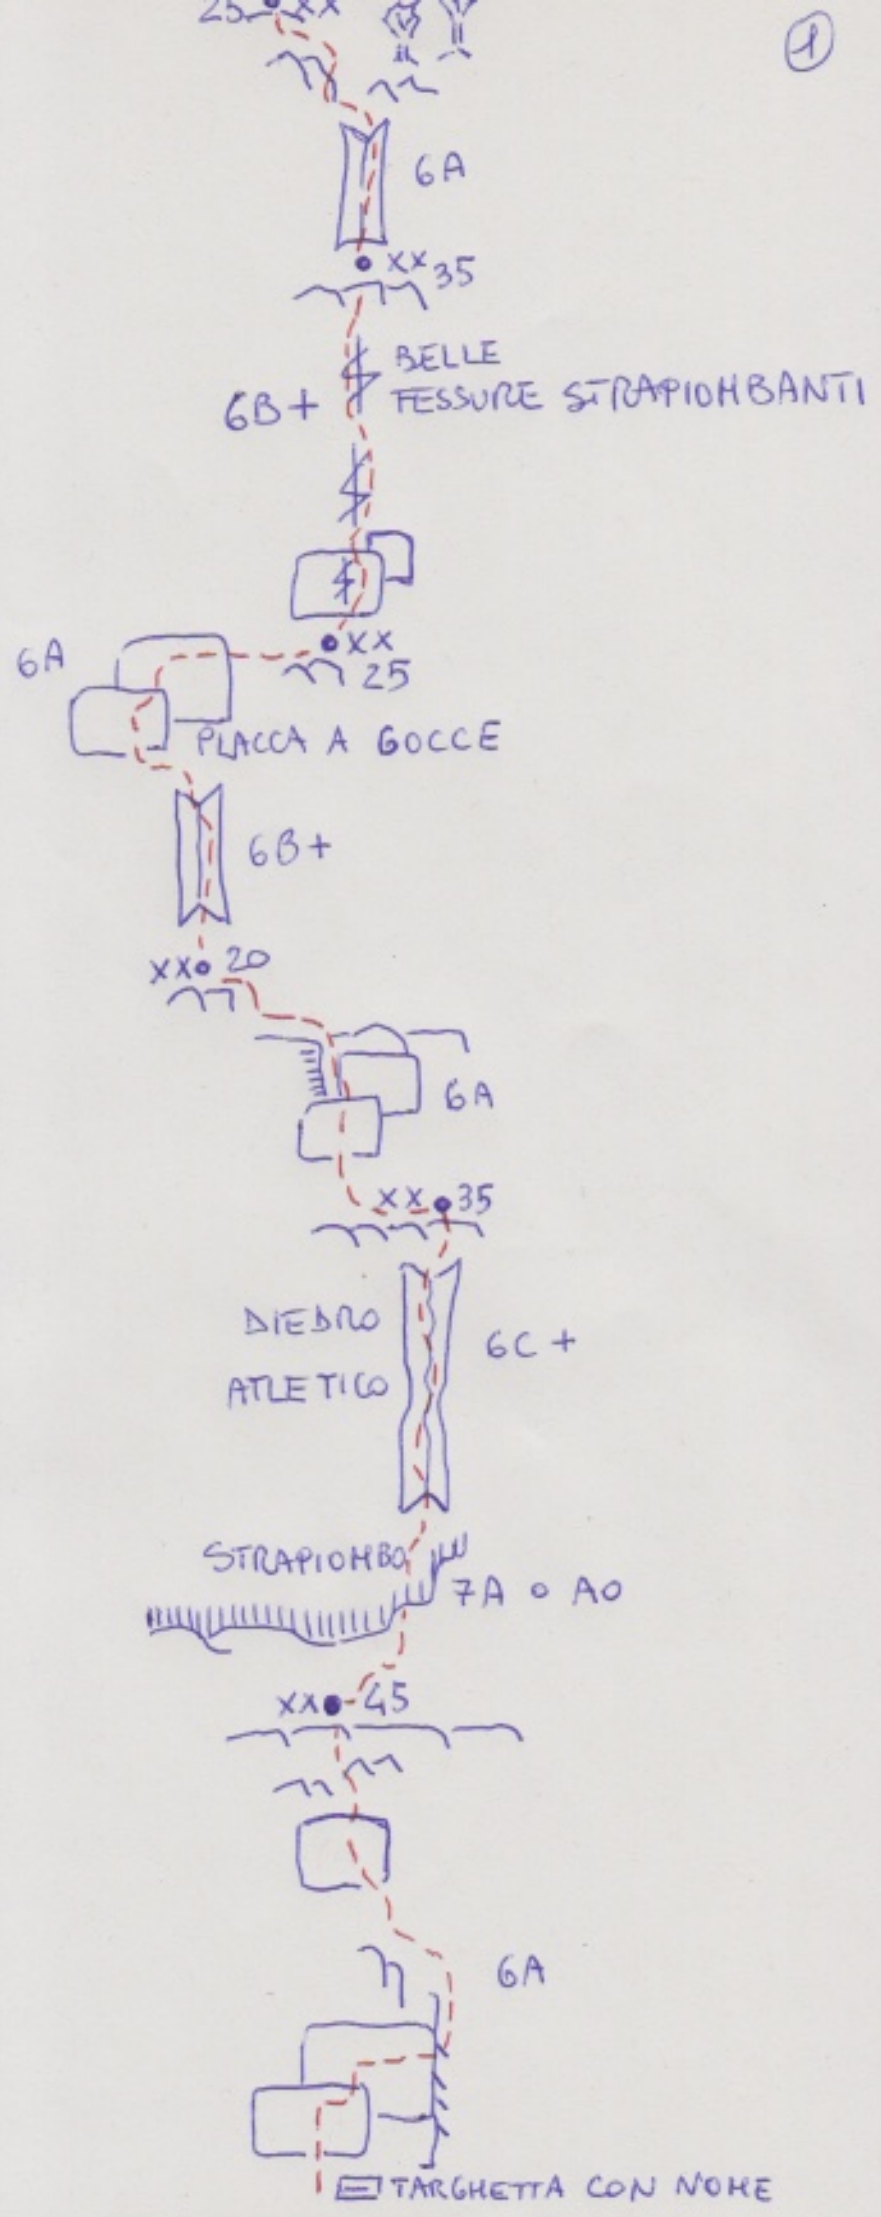 25 XX
1
6A
XX 35
BELLE
FESSURE STRAPIOMBANTI
6B+
XX
25
6A
PLACCA A GOCCE
6B+
XX 20
6A
XX 35
DIEDRO
ATLETICO
6C+
STRAPIOMBO
7A O AO
XX 45
6A
TARGHETTA CON NOME